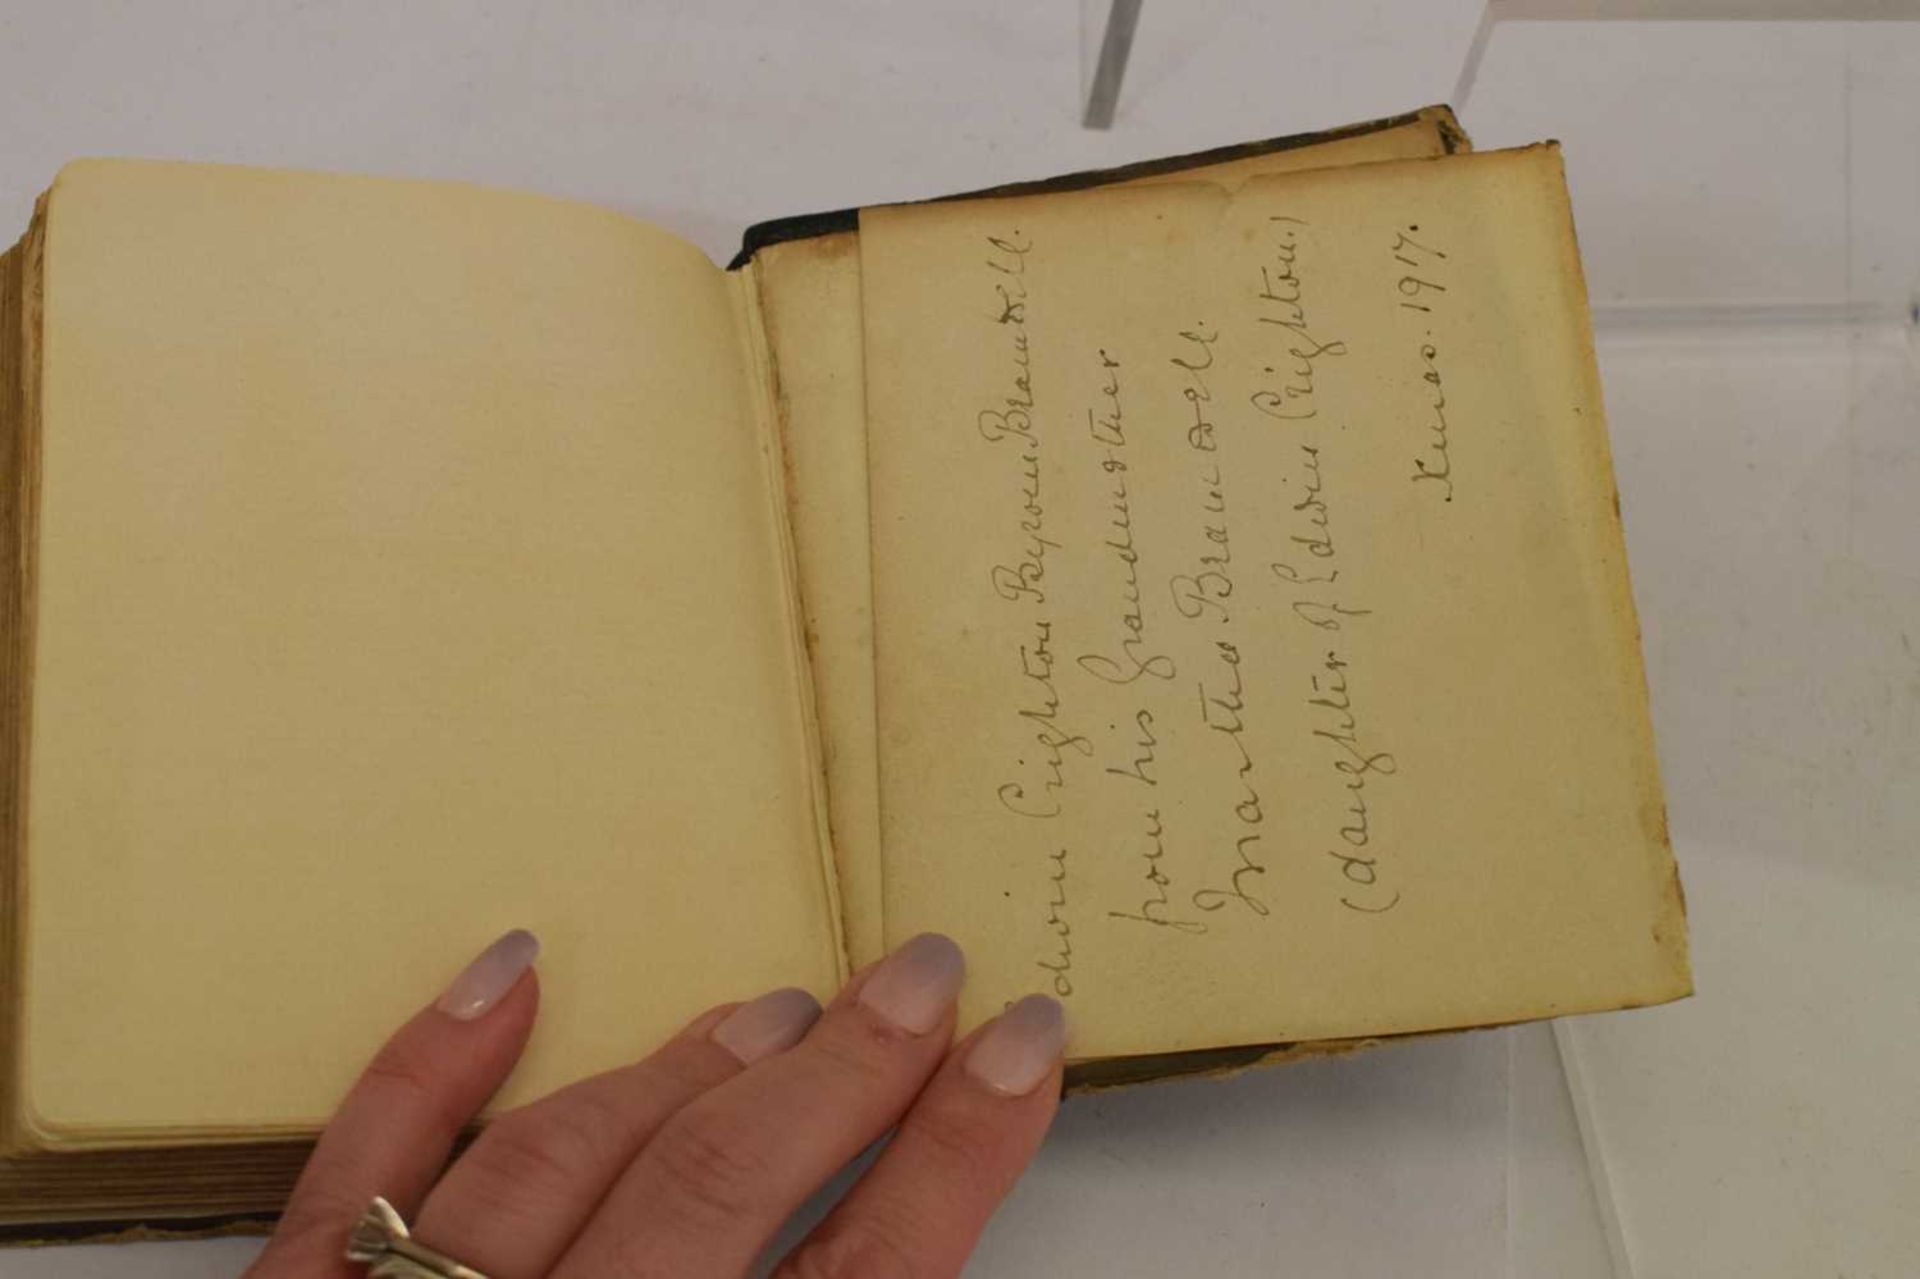 Edwin Crighton Byrom Bramwell.
from his Grandmother
Martha Bramwell.
(daughter of Edwin Crighton.)
Xmas. 1917.